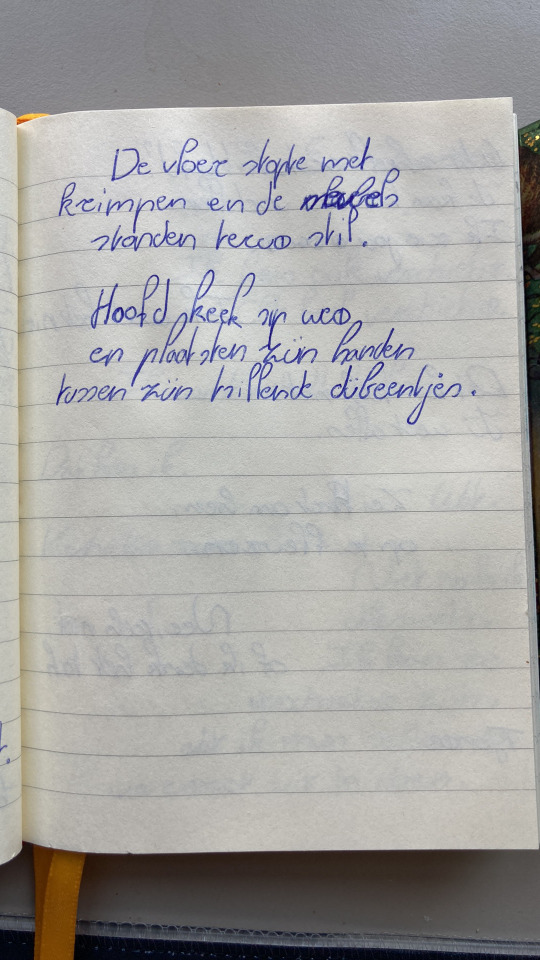 De vloer stopte met
krimpen en de meubels
standen terug stil.
Hoofd keek op
en plaatsten zijn handen
tussen zijn trillende dijbeentjes.